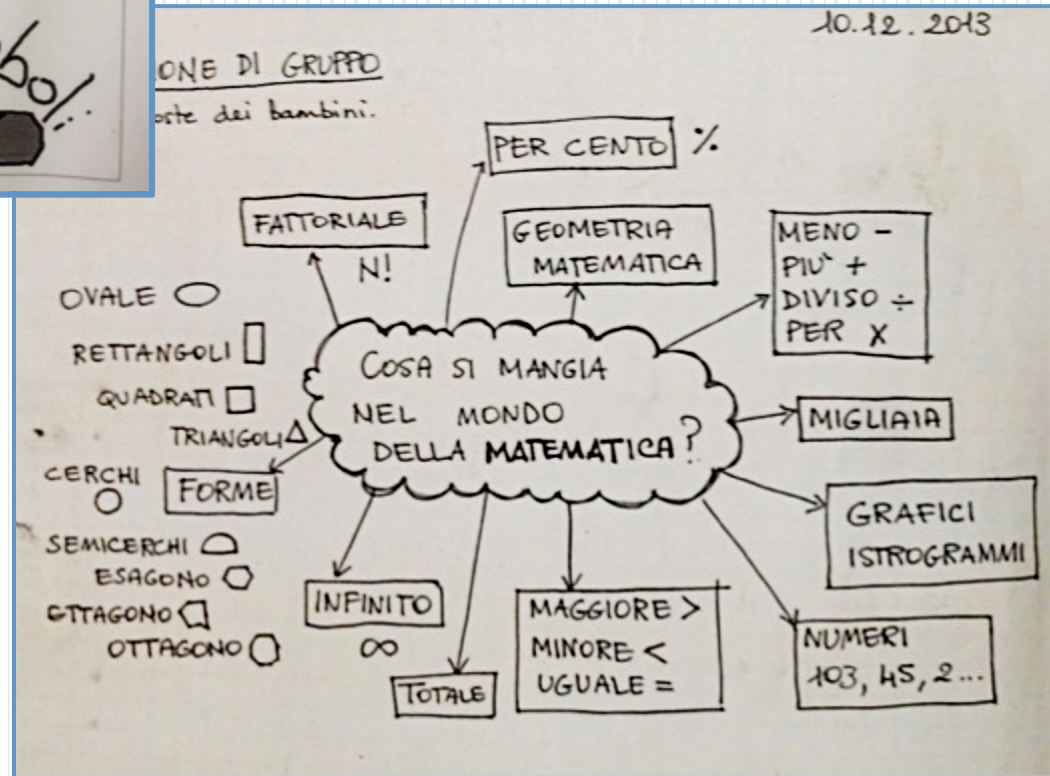 10.12.2013
ONE DI GRUPPO
oste dei bambini.
PER CENTO %
FATTORIALE
N!
GEOMETRIA
MATEMATICA
MENO -
PIU' +
DIVISO ÷
PER X
OVALE
RETTANGOLI
QUADRATI
TRIANGOLI
CERCHI
FORME
SEMICERCHI
ESAGONO
ETTAGONO
OTTAGONO
COSA SI MANGIA
NEL MONDO
DELLA MATEMATICA?
MIGLIAIA
GRAFICI
ISTROGRAMMI
INFINITO
∞
TOTALE
MAGGIORE >
MINORE <
UGUALE =
NUMERI
103, 45, 2...